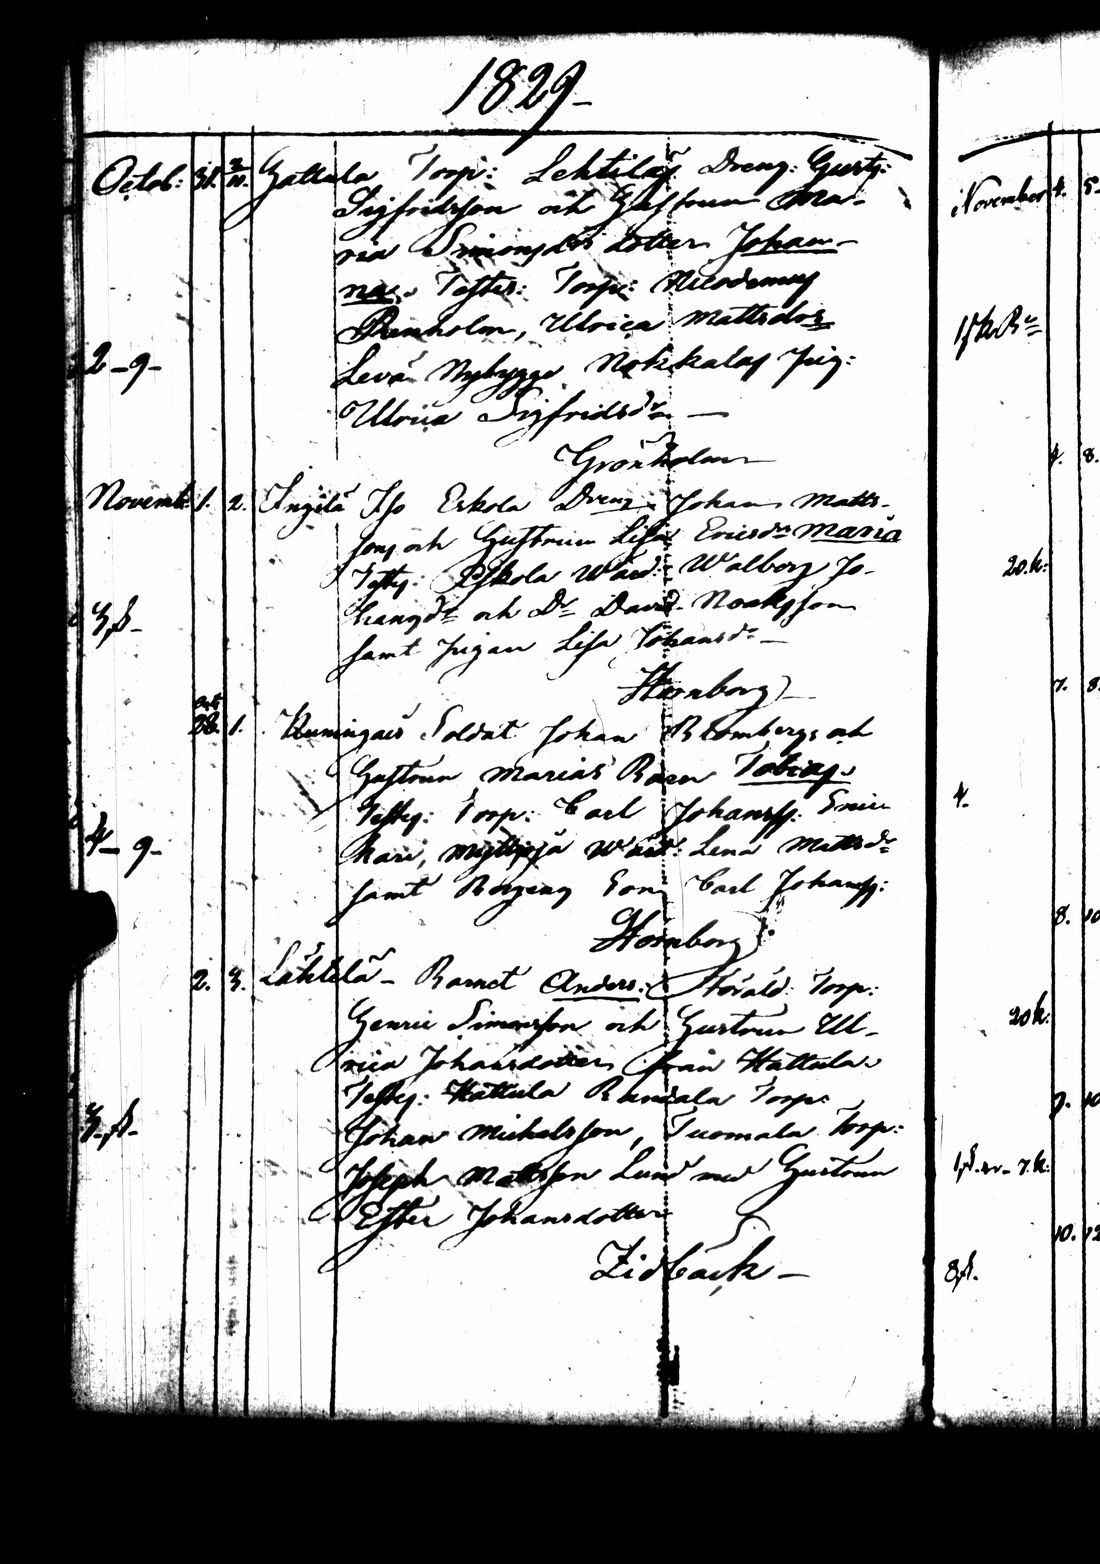 1829
Octob: 31. Hattula Torp: Lehtiläs Dreng: Gust:
Sigfridsson och Hustrun Ma-
ria Simonsdrs dotter Johan-
na. Testes: Torp: Nicodemus
Renholm, Ulrica Mattsdor
2 - 9 -
Levä Nybygge Nokkalas Pig:
Ulrica Sigfridsdr
Grönholm
Novemb: 1. 2. Ingilä Iso Eskola Dreng Johan Matts-
son och Hustrun Lisa Ericsdr Maria
Testes: Eskola Wärd: Walborg Jo-
hansdr och Dr David Noaksson
3,S-
samt Pigan Lisa Johansdr
Hornborg
Oct
28. 1. Huningais Soldat Johan Blombergs och
Hustrun Marias Barn Tobias.
Testes: Torp: Carl Johanss:
kari, Wärd: Lena Mattsdr
4 - 9 -
samt Son Carl Johanss:
Hornborg
2. 3. Lähtelä - Barnet Anders: Föräld: Torp:
Henric Simonsson och Hustrun Ul-
rica Johansdotter från Hattula.
Testes: Hattula Randala Torp:
3,S-
Johan Michelsson, Tuomala Torp:
Joseph Mattsson Lund med Hustrun
Ester Johansdotter
Zidbäck
November 4. 5.
4. 8.
20.k:
7. 8.
4.
8. 10
20k:
9. 10
7.k:
10. 12
8,S.